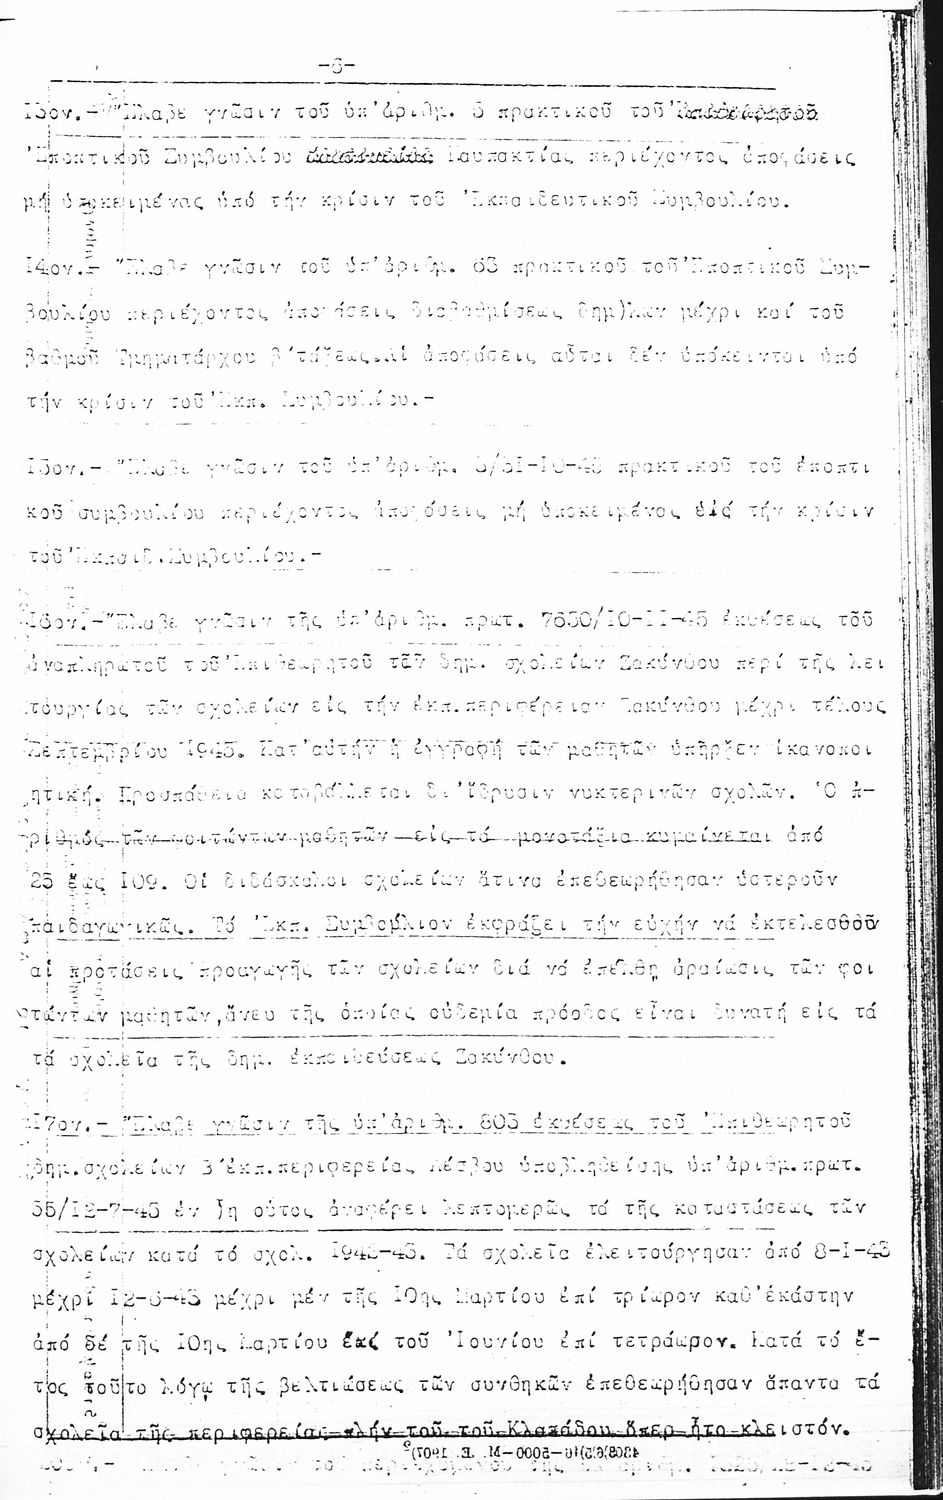 -6-
Ι3ον.- Ἔλαβε γνῶσιν τοῦ ὑπ'ἀριθμ. πρακτικοῦ τοῦ
Ἐποπτικοῦ Συμβουλίου Ναυπακτίας περιέχοντος ἀποφάσεις
μή ὑποκειμένας ὑπό τήν κρίσιν τοῦ Ἐκπαιδευτικοῦ Συμβουλίου.
Ι4ον.- Ἔλαβε γνῶσιν τοῦ ὑπ'ἀριθμ. 63 πρακτικοῦ τοῦ Ἐποπτικοῦ Συμ-
βουλίου περιέχοντος ἀποφάσεις διαβαθμίσεως δημ)λων μέχρι καί τοῦ
βαθμοῦ Τμηματάρχου β΄τάξεως.Αἱ ἀποφάσεις αὗται δέν ὑπόκεινται ὑπό
τήν κρίσιν τοῦ Ἐκπ. Συμβουλίου.-
Ι5ον.- Ἔλαβε γνῶσιν τοῦ ὑπ'ἀριθμ. πρακτικοῦ τοῦ ἐποπτι
κοῦ συμβουλίου περιέχοντος ἀποφάσεις μή ὑποκειμένας τήν κρίσιν
τοῦ Ἐκπαιδ.Συμβουλίου.-
Ι6ον.- Ἔλαβε γνῶσιν τῆς ὑπ'ἀριθμ. πρωτ. 7630/Ι0-ΙΙ-45 ἐκθέσεως τοῦ
ἀναπληρωτοῦ τοῦ Ἐπιθεωρητοῦ τῶν δημ. σχολείων Ζακύνθου περί τῆς λει
τουργίας τῶν σχολείων εἰς τήν ἐκπ.περιφέρειαν Ζακύνθου μέχρι τέλους
Σεπτεμβρίου Ι945. Κατ'αὐτήν ἡ ἐγγραφή τῶν μαθητῶν ὑπῆρξεν ἱκανοποι
ητική. Προσπάθεια καταβάλλεται δι'ἵδρυσιν νυκτερινῶν σχολῶν. Ὁ ἀ-
ριθμός τῶν φοιτώντων μαθητῶν εἰς τά μονοτάξια κυμαίνεται ἀπό
25 ἕως Ι09. Οἱ διδάσκαλοι σχολείων ἅτινα ἐπεθεωρήθησαν ὑστεροῦν
παιδαγωγικῶς. Τό Ἐκπ. Συμβούλιον ἐκφράζει τήν εὐχήν νά ἐκτελεσθοῦν
αἱ προτάσεις προαγωγῆς τῶν σχολείων διά νά ἐπέλθῃ ἀραίωσις τῶν φοι
τώντων μαθητῶν,ἄνευ τῆς ὁποίας οὐδεμία πρόοδος εἶναι δυνατή εἰς τά
τά σχολεῖα τῆς δημ. ἐκπαιδεύσεως Ζακύνθου.
Ι7ον.- Ἔλαβε γνῶσιν τῆς ὑπ'ἀριθμ. 803 ἐκθέσεως τοῦ Ἐπιθεωρητοῦ
δημ.σχολείων Β΄ἐκπ.περιφερείας Λέσβου ὑποβληθείσης ὑπ'ἀριθμ.πρωτ.
55/Ι2-7-45 ἐν ᾗ οὗτος ἀναφέρει λεπτομερῶς τά τῆς καταστάσεως τῶν
σχολείων κατά τό σχολ. Τά σχολεῖα ἐλειτούργησαν ἀπό 8-Ι-45
μέχρι Ι2-6-45 μέχρι μέν τῆς Ι0ης Μαρτίου ἐπί τρίωρον καθ'ἑκάστην
ἀπό δέ τῆς Ι0ης Μαρτίου τοῦ Ἰουνίου ἐπί τετράωρον. Κατά τό ἔ-
τος τοῦτο λόγῳ τῆς βελτιώσεως τῶν συνθηκῶν ἐπεθεωρήθησαν ἅπαντα τά
σχολεῖα τῆς περιφερείας πλήν τοῦ τοῦ Κλαπάδου ὅπερ ἦτο κλειστόν.